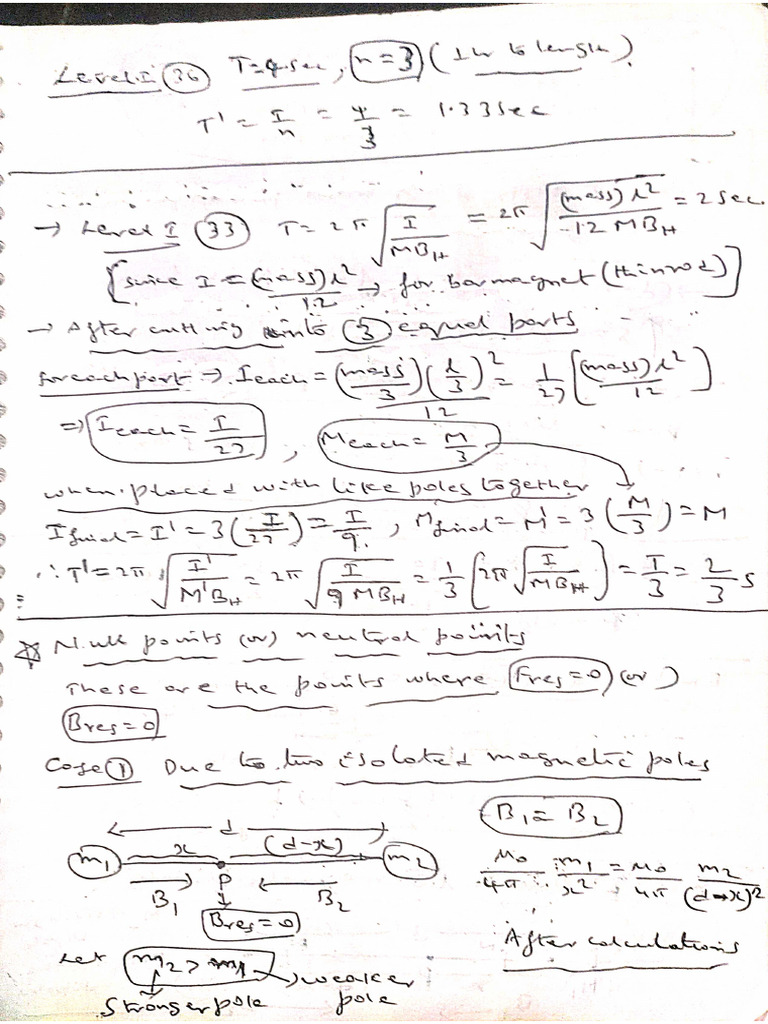 Level-I (36) T=4 sec, n=3 (⊥r to length)
T' = T/n = 4/3 = 1.33 sec
→ Level I (33) T = 2π √(I/MB_H) = 2π √((mass) l²/12 MB_H) = 2 sec.
[since I = (mass) l²/12 → for bar magnet (thin rod)]
→ After cutting into (3) equal parts
for each part → I each = (mass/3)(l/3)²/12 = 1/27 [(mass) l²/12]
⇒ I each = I/27 , M each = M/3
when placed with like poles together
I final = I' = 3(I/27) = I/9. , M final = M' = 3(M/3) = M
∴ T' = 2π √(I'/M'B_H) = 2π √(I/9 MB_H) = 1/3 [2π √(I/MB_H)] = T/3 = 2/3 s
☆ Null points (or) neutral points
These are the points where Fres=0 (or)
Bres=0
Case (1) Due to two isolated magnetic poles
d
B₁ = B₂
m₁ x (d-x) m₂
μ₀/4π m₁/x² = μ₀/4π m₂/(d-x)²
B₁ P B₂
Bres=0
After calculations
Let m₂ > m₁ → weaker pole
Stronger pole